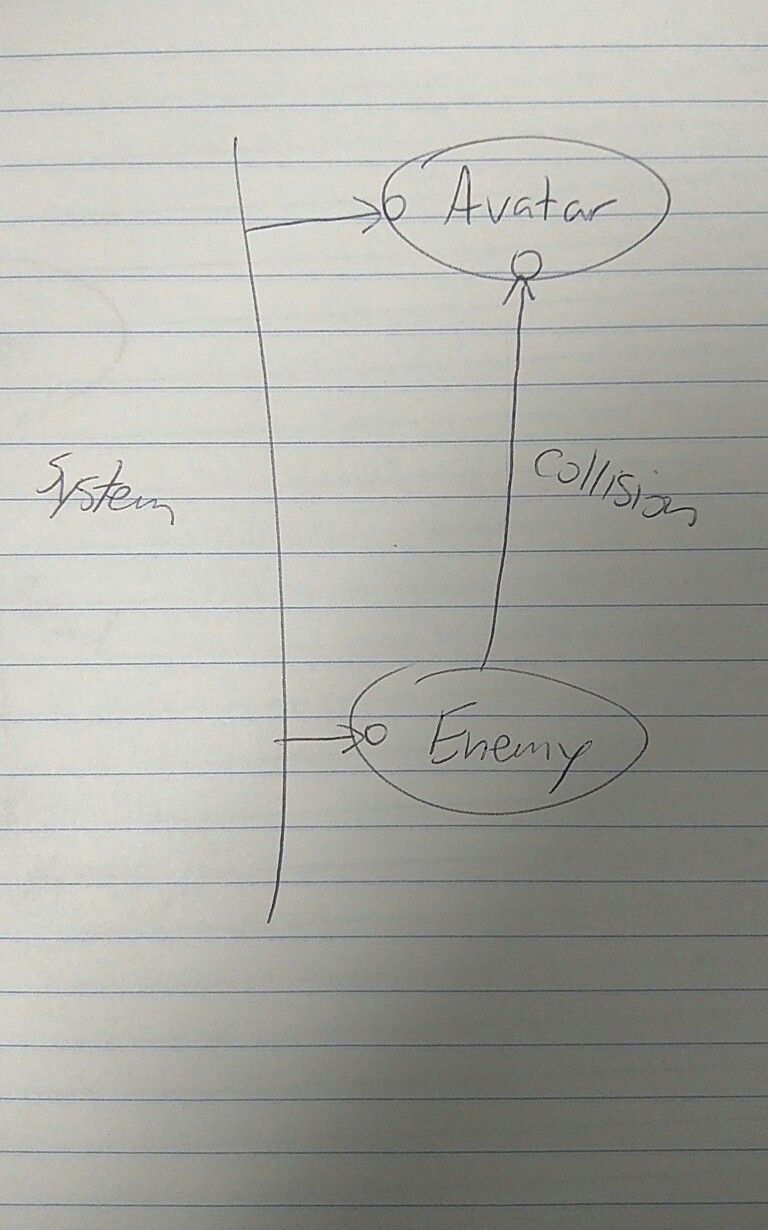 Avatar
System
Collision
Enemy